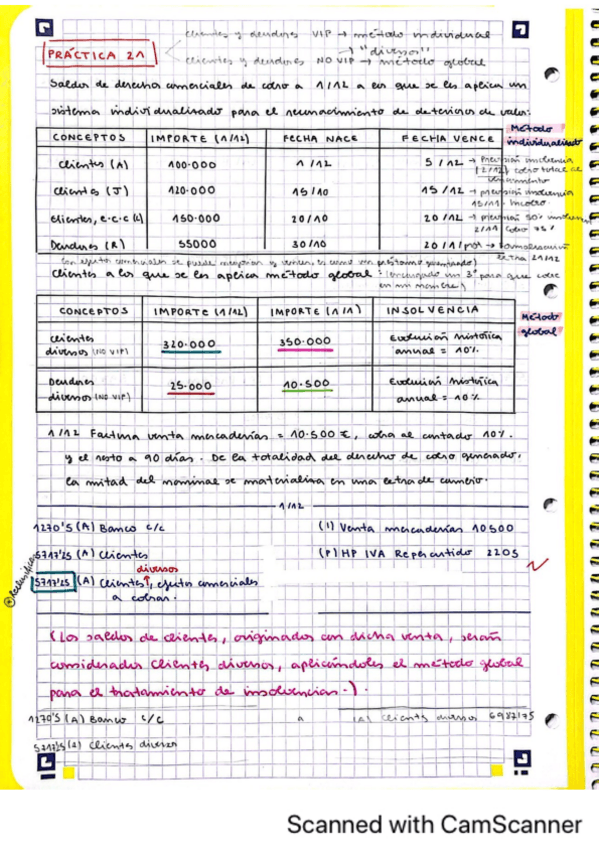 clientes y deudores VIP → método individual
PRÁCTICA 21
→ "diversos"
clientes y deudores NO VIP → método global
Saldos de derechos comerciales de cobro a 1/12 a los que se les aplica un
sistema individualizado para el reconocimiento de deterioros de valor:
CONCEPTOS IMPORTE (1/12) FECHA NACE FECHA VENCE
Método
individualizado
Clientes (A) 100.000 1/12 5/12 → Previsión insolvencia
(2/12) cobro total al
vencimiento
Clientes (J) 120.000 15/10 15/12 → previsión insolvencia
15/11.
Clientes, e.c.c (L) 150.000 20/10 20/12 → previsión 50% insolvencia
2/11 Cobro 75%
Deudores (R) 55000 30/10 20/1/
letra 21/12
Clientes a los que se les aplica método global:
en mi nombre)
CONCEPTOS IMPORTE (1/12) IMPORTE (1/1) INSOLVENCIA
Método
global
Clientes
diversos (NO VIP) 320.000 350.000 Evolución histórica
anual = 10%
Deudores
diversos (NO VIP) 25.000 10.500 Evolución histórica
anual = 10%
1/12 Factura venta mercaderías = 10.500 €, cobra al contado 10%.
y el resto a 90 días. De la totalidad del derecho de cobro generado,
la mitad del nominal se materializa en una letra de cambio.
1/12
1270'5 (A) Banco c/c (I) Venta mercaderías 10500
5717'25 (A) Clientes (P) HP IVA Repercutido 2205
diversos
5717'25 (A) Clientes, efectos comerciales
a cobrar.
(Los saldos de clientes, originados con dicha venta, serán
considerados clientes diversos, aplicándoles el método global
para el tratamiento de insolvencias.).
1270'5 (A) Banco c/c a (A) Clientes diversos 6987'75
5717'25 (A) Clientes diversos
Scanned with CamScanner